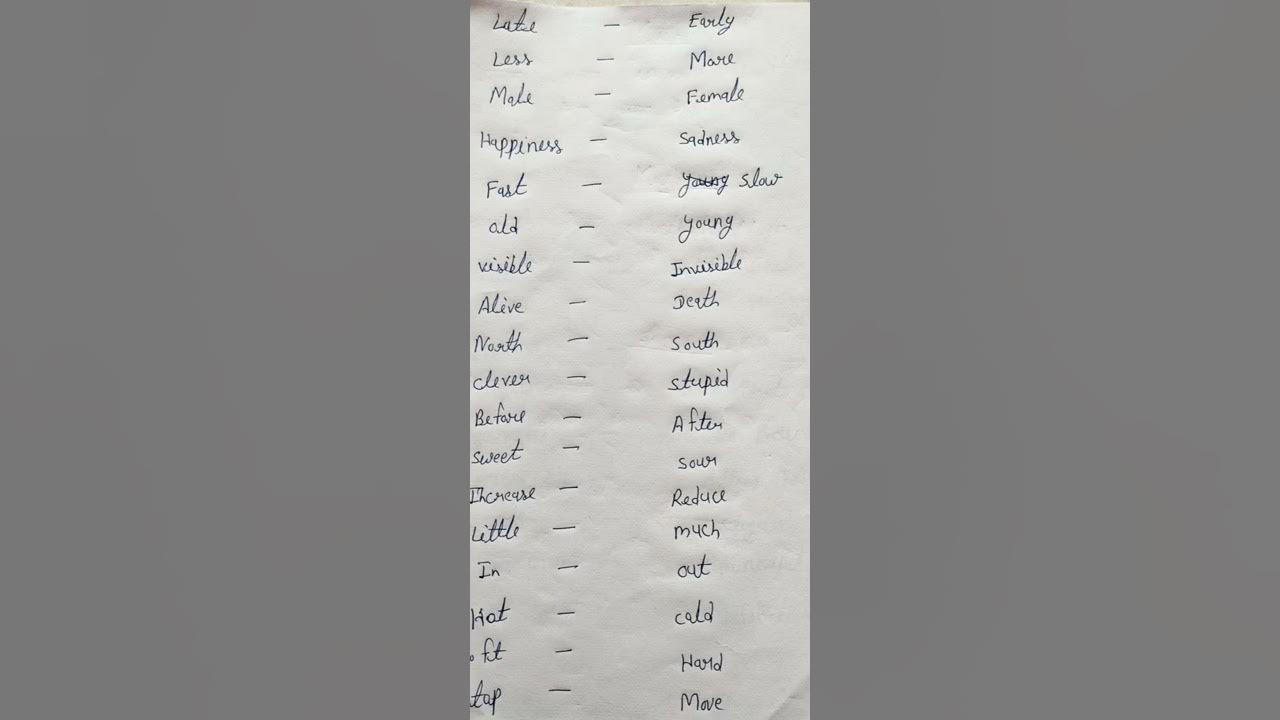 Late — Early
Less — More
Male — Female
Happiness — Sadness
Fast — young slow
old — young
visible — Invisible
Alive — Death
North — South
clever — stupid
Before — After
sweet — sour
Increase — Reduce
Little — much
In — out
Hot — cold
oft — Hard
top — Move